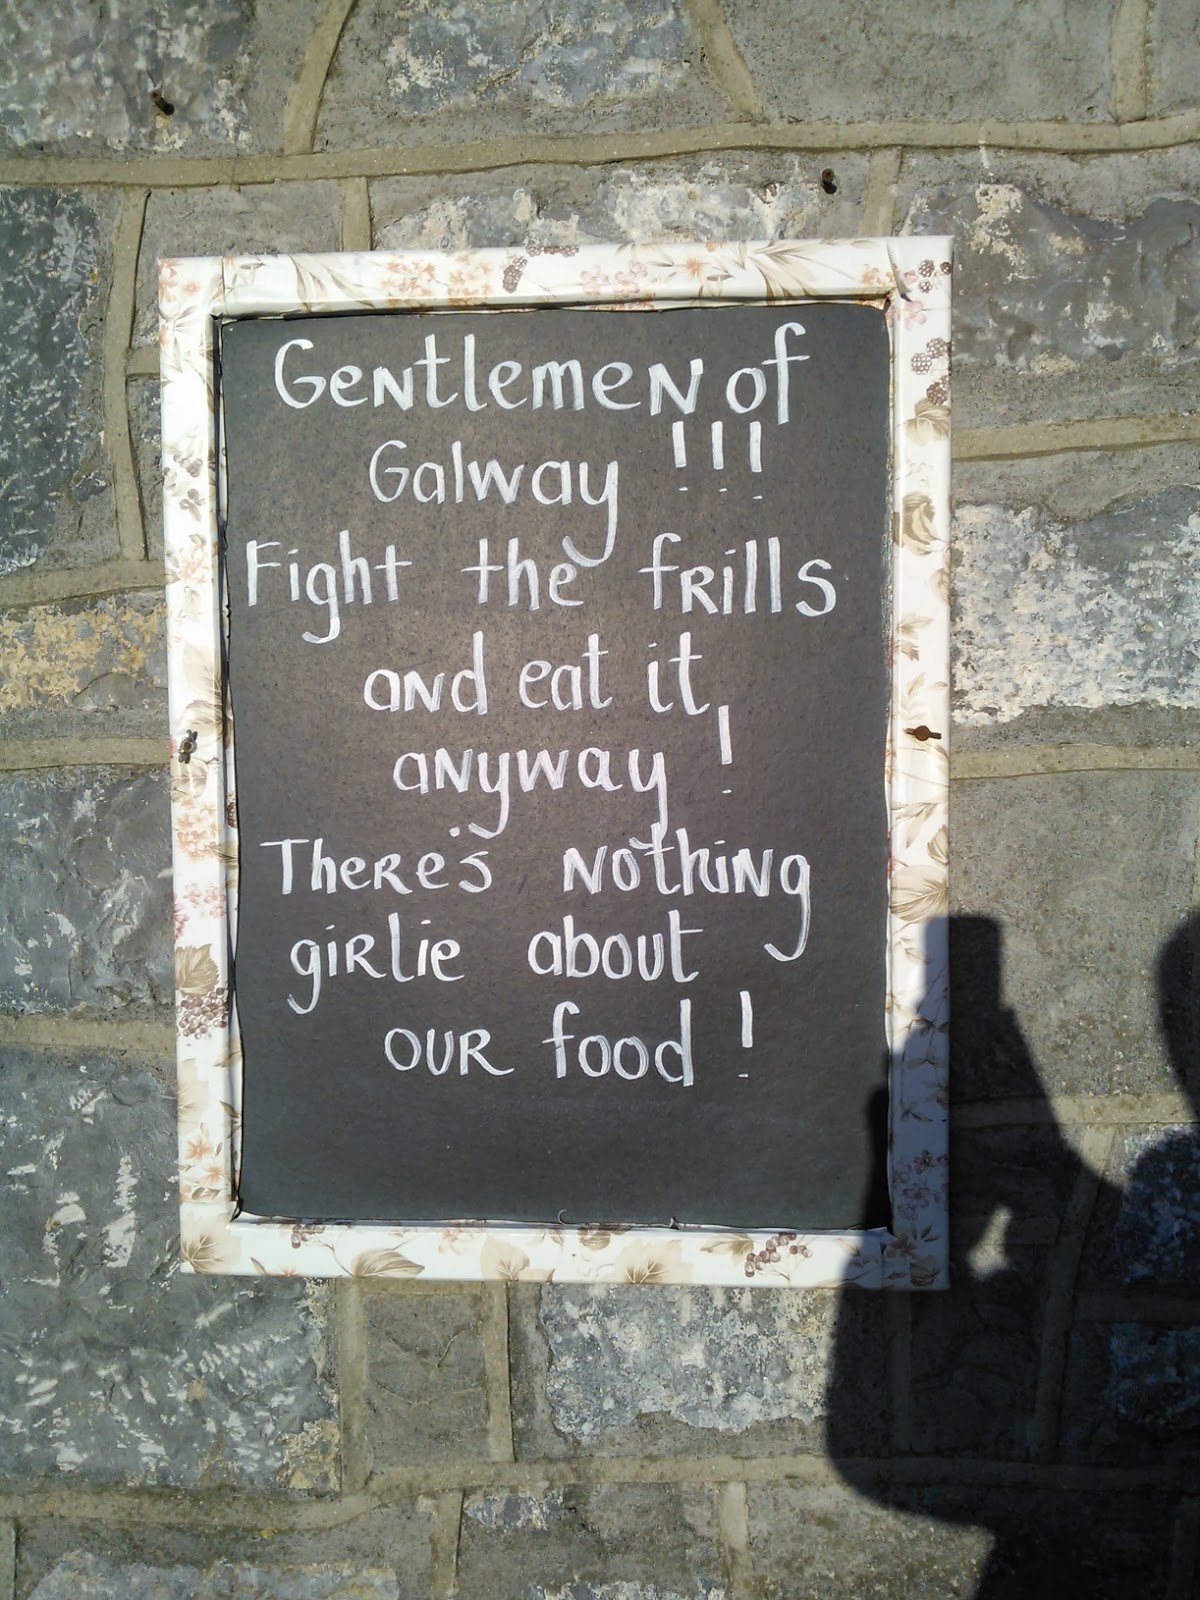 Gentlemen of
Galway !!!
Fight the frills
and eat it
anyway !
There's nothing
girlie about
our food !